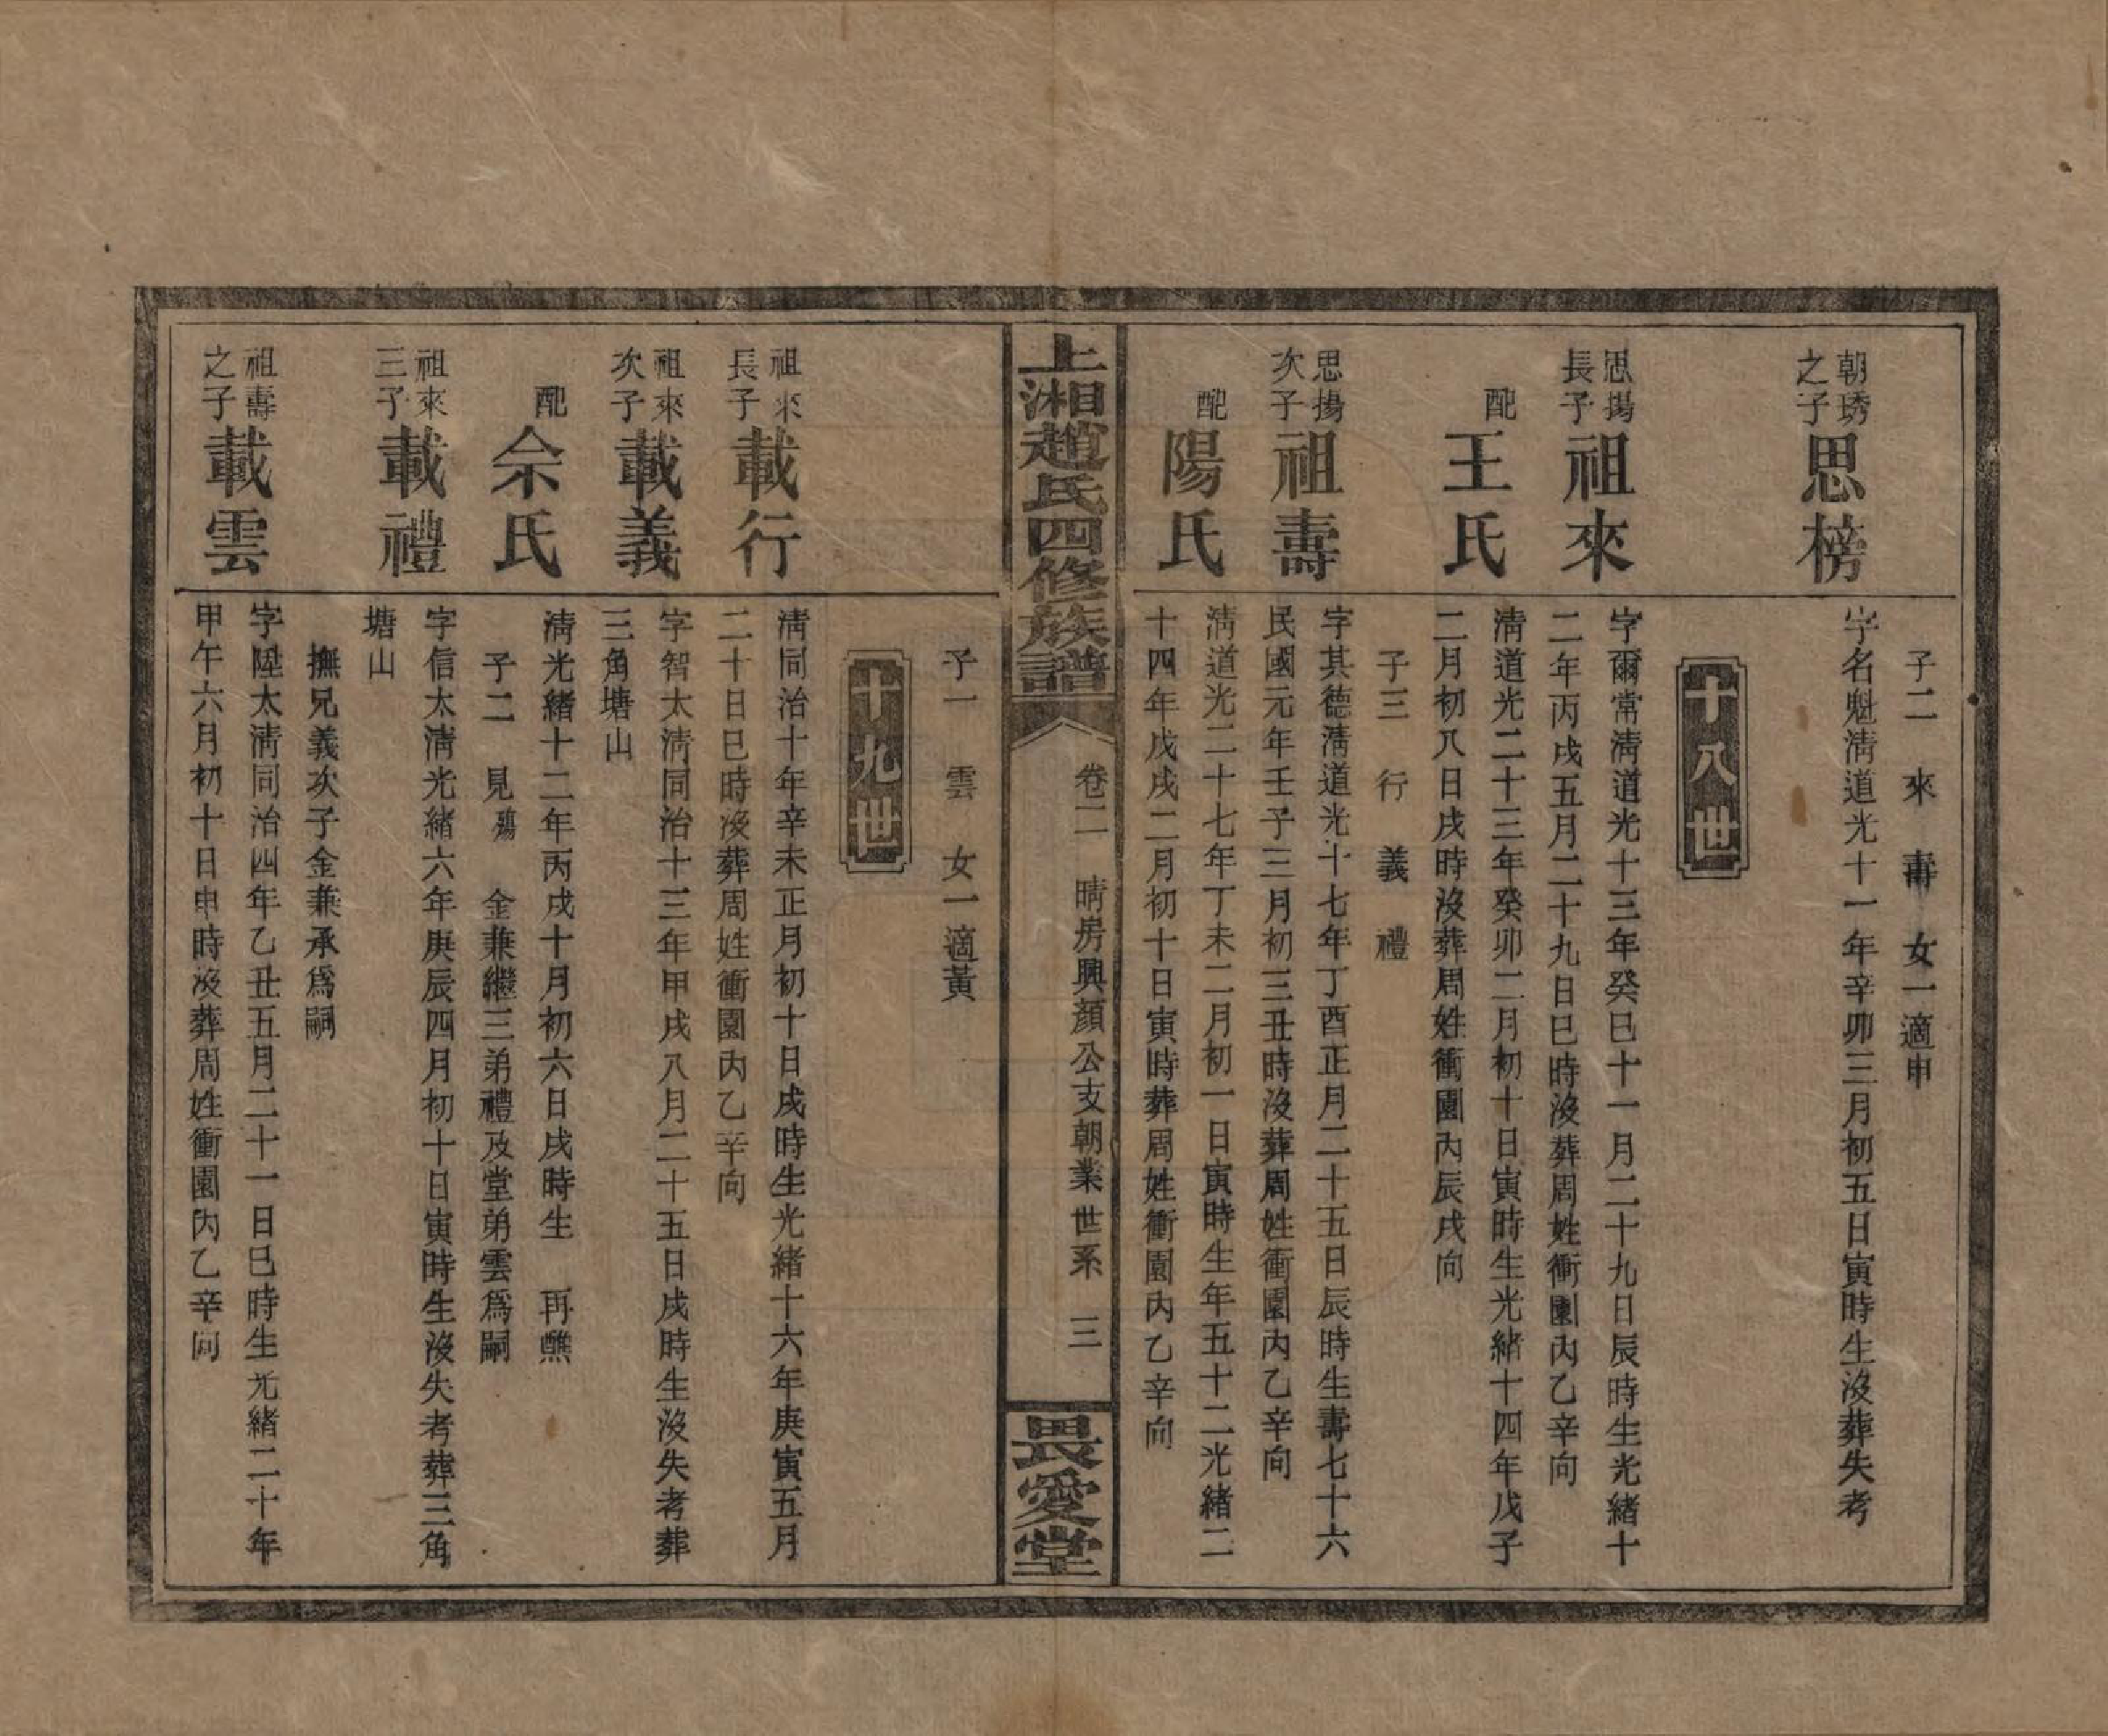 子二　來　壽　女一適申
朝琇
之子
思榜
字名魁清道光十一年辛卯三月初五日寅時生沒葬失考
十八世
思揚
長子
祖來
字爾常清道光十三年癸巳十一月二十九日辰時生光緒十
二年丙戌五月二十九日巳時沒葬周姓衝園內乙辛向
配
王氏
清道光二十三年癸卯二月初十日寅時生光緒十四年戊子
二月初八日戌時沒葬周姓衝園內辰戌向
子三　行　義　禮
思揚
次子
祖壽
字其德清道光十七年丁酉正月二十五日辰時生壽七十六
民國元年壬子三月初三丑時沒葬周姓衝園內乙辛向
配
陽氏
清道光二十七年丁未二月初一日寅時生年五十二光緒二
十四年戊戌二月初十日寅時葬周姓衝園內乙辛向
上湘趙氏四修族譜
卷二　晴房興顏公支朝業世系　三
畏愛堂
子一　雲　女一適黃
十九世
祖來
長子
載行
清同治十年辛未正月初十日戌時生光緒十六年庚寅五月
二十日巳時沒葬周姓衝園內乙辛向
祖來
次子
載義
字智太清同治十三年甲戌八月二十五日戌時生沒失考葬
三角塘山
配
佘氏
清光緒十二年丙戌十月初六日戌時生　再醮
子二　見殤　金兼繼三弟禮及堂弟雲為嗣
祖來
三子
載禮
字信太清光緒六年庚辰四月初十日寅時生沒失考葬三角
塘山
撫兄義次子金兼承為嗣
祖壽
之子
載雲
字陞太清同治四年乙丑五月二十一日巳時生光緒二十年
甲午六月初十日申時沒葬周姓衝園內乙辛向